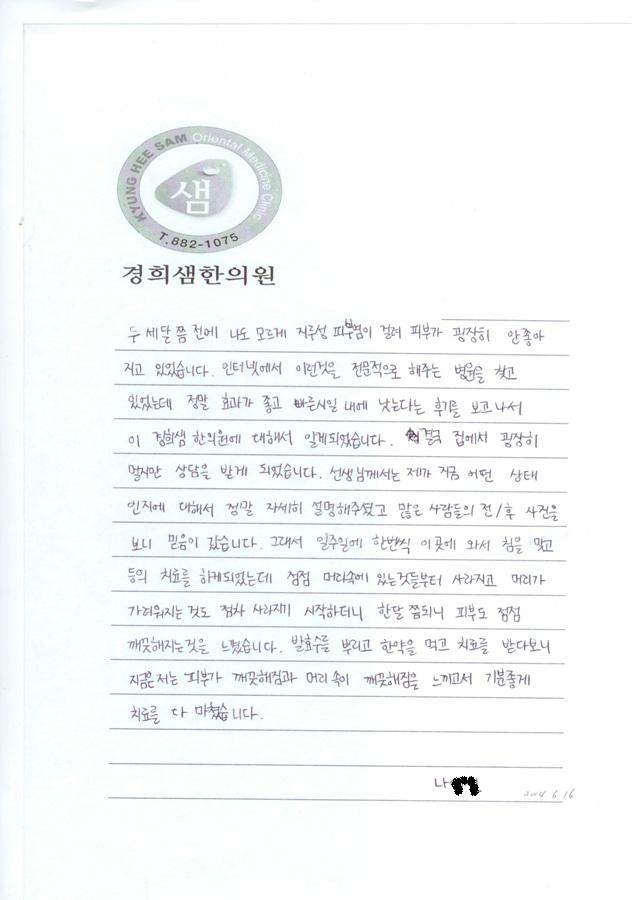 KYUNG HEE SAM Oriental Medicine Clinic
샘
T.882-1075
경희샘한의원
두 세달 쯤 전에 나도 모르게 지루성 피부염이 걸려 피부가 굉장히 안좋아
지고 있었습니다. 인터넷에서 이런것을 전문적으로 해주는 병원을 찾고
있었는데 정말 효과가 좋고 빠른시일 내에 낫는다는 후기를 보고나서
이 경희샘 한의원에 대해서 알게되었습니다. 결국 집에서 굉장히
멀지만 상담을 받게 되었습니다. 선생님께서는 제가 지금 어떤 상태
인지에 대해서 정말 자세히 설명해주셨고 많은 사람들의 전/후 사진을
보니 믿음이 갔습니다. 그래서 일주일에 한번씩 이곳에 와서 침을 맞고
등의 치료를 하게되었는데 점점 머리속에 있는것들부터 사라지고 머리가
가려워지는 것도 점차 사라지기 시작하더니 한달 쯤되니 피부도 점점
깨끗해지는것을 느꼈습니다. 발효수를 뿌리고 한약을 먹고 치료를 받다보니
지금은 저는 피부가 깨끗해짐과 머리 속이 깨끗해짐을 느끼고서 기분좋게
치료를 다 마쳤습니다.
나
2014 6.16